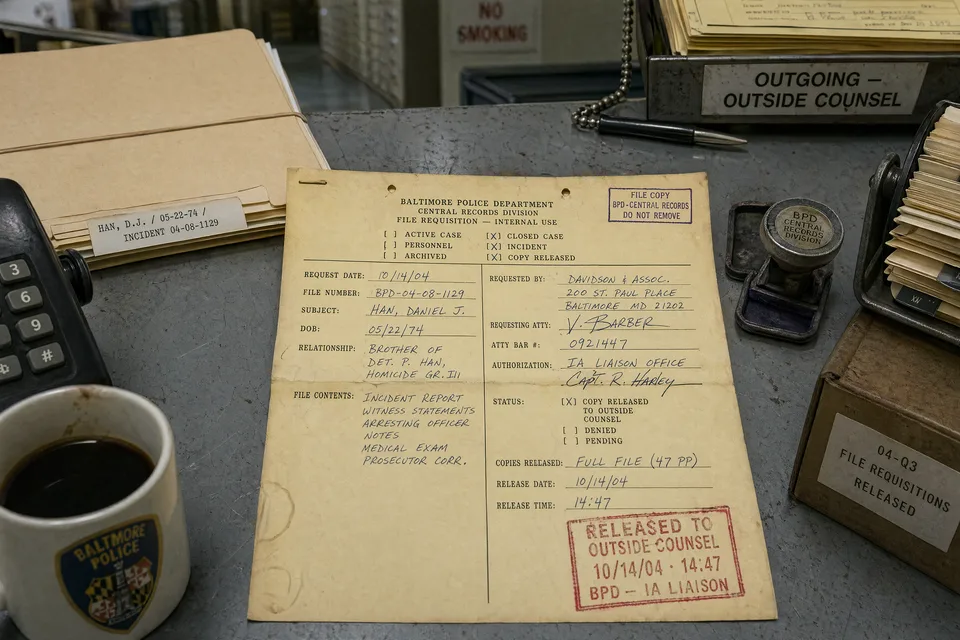 NO
SMOKING
OUTGOING —
OUTSIDE COUNSEL
HAN, D.J. / 05-22-74 /
INCIDENT 04-08-1129
3
6
9
#
BALTIMORE
POLICE
BALTIMORE POLICE DEPARTMENT
CENTRAL RECORDS DIVISION
FILE REQUISITION — INTERNAL USE
FILE COPY
BPD-CENTRAL RECORDS
DO NOT REMOVE
[ ] ACTIVE CASE [X] CLOSED CASE
[ ] PERSONNEL [X] INCIDENT
[ ] ARCHIVED [X] COPY RELEASED
REQUEST DATE: 10/14/04
FILE NUMBER: BPD-04-08-1129
SUBJECT: HAN, DANIEL J.
DOB: 05/22/74
RELATIONSHIP: BROTHER OF
DET. P. HAN,
HOMICIDE GR. III
FILE CONTENTS: INCIDENT REPORT
WITNESS STATEMENTS
ARRESTING OFFICER
NOTES
MEDICAL EXAM
PROSECUTOR CORR.
REQUESTED BY: DAVIDSON & ASSOC.
200 ST. PAUL PLACE
BALTIMORE MD 21202
REQUESTING ATTY: V. BARBER
ATTY BAR #: 0921447
AUTHORIZATION: IA LIAISON OFFICE
CAPT. R. HARLEY
STATUS: [X] COPY RELEASED
TO OUTSIDE
COUNSEL
[ ] DENIED
[ ] PENDING
COPIES RELEASED: FULL FILE (47 PP)
RELEASE DATE: 10/14/04
RELEASE TIME: 14:47
RELEASED TO
OUTSIDE COUNSEL
10/14/04 · 14:47
BPD — IA LIAISON
BPD
CENTRAL
RECORDS
DIVISION
04-Q3
FILE REQUISITIONS
RELEASED